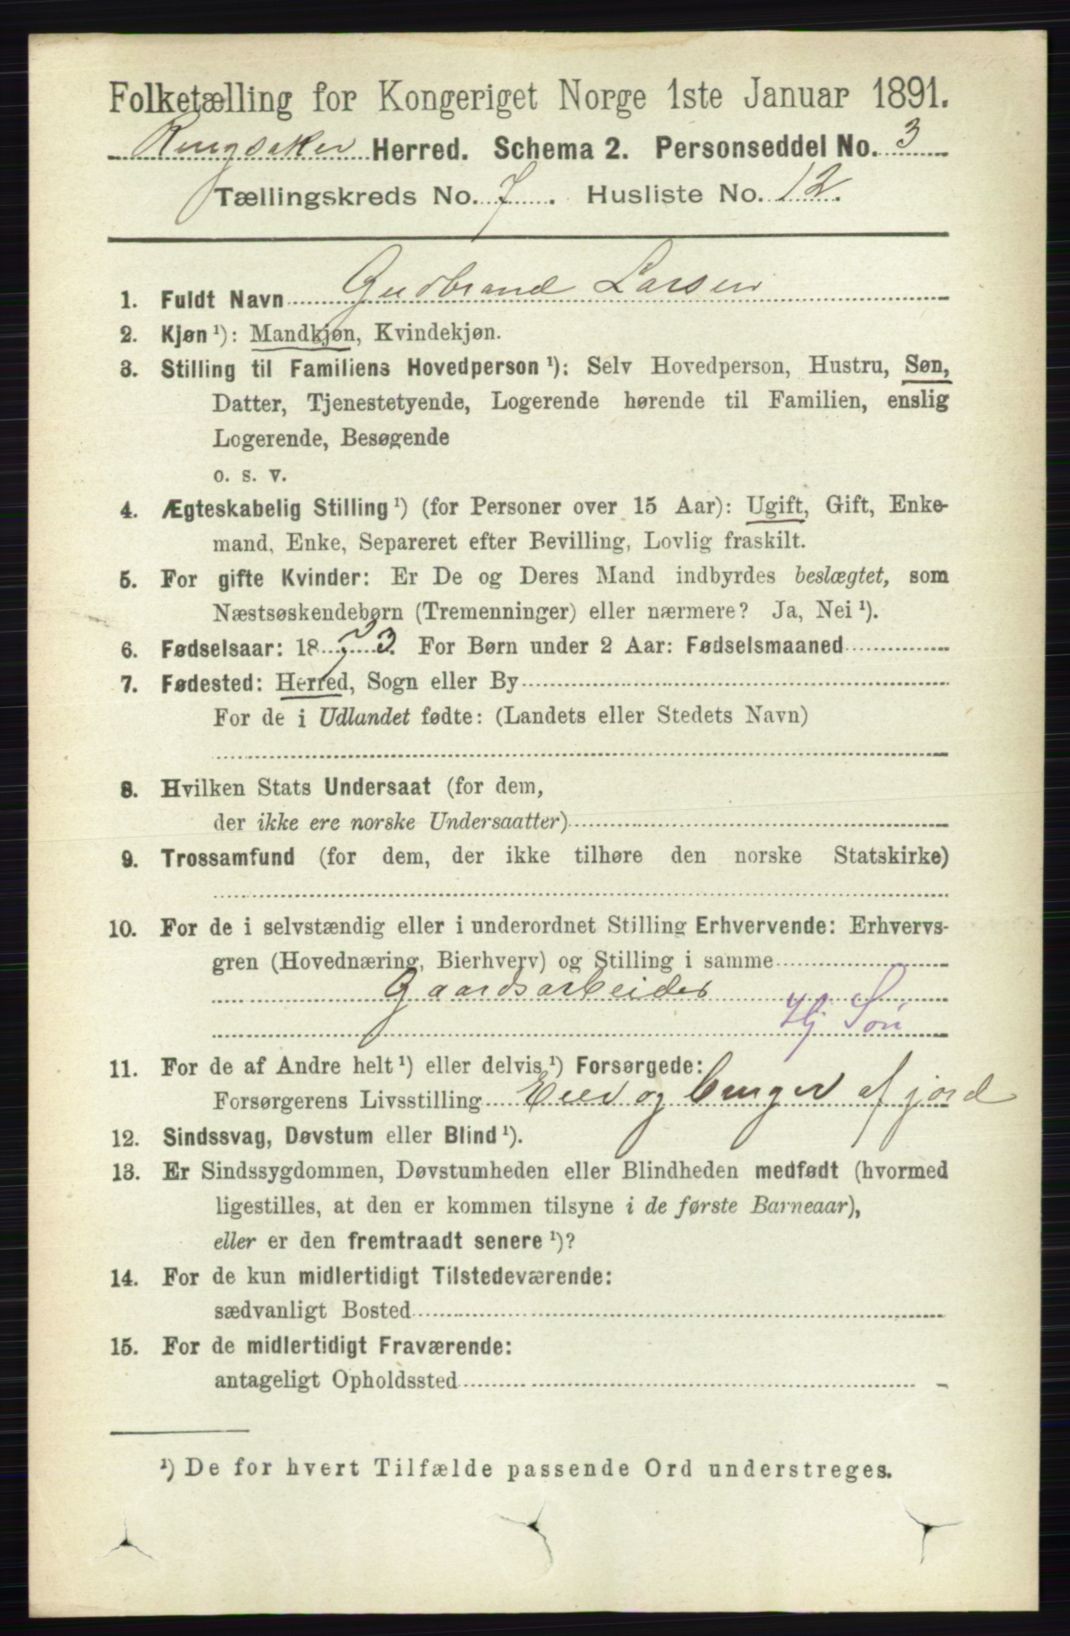 Folketælling for Kongeriget Norge 1ste Januar 1891.
Ringsaker Herred. Schema 2. Personseddel No. 3
Tællingskreds No. 7. Husliste No. 12.
1. Fuldt Navn Gudbrand Larsen
2. Kjøn ¹): Mandkjøn, Kvindekjøn.
3. Stilling til Familiens Hovedperson ¹): Selv Hovedperson, Hustru, Søn,
Datter, Tjenestetyende, Logerende hørende til Familien, enslig
Logerende, Besøgende
o. s. v.
4. Ægteskabelig Stilling ¹) (for Personer over 15 Aar): Ugift, Gift, Enke-
mand, Enke, Separeret efter Bevilling, Lovlig fraskilt.
5. For gifte Kvinder: Er De og Deres Mand indbyrdes beslægtet, som
Næstsøskendebørn (Tremenninger) eller nærmere? Ja, Nei ¹).
6. Fødselsaar: 1873. For Børn under 2 Aar: Fødselsmaaned
7. Fødested: Herred, Sogn eller By
For de i Udlandet fødte: (Landets eller Stedets Navn)
8. Hvilken Stats Undersaat (for dem,
der ikke ere norske Undersaatter)
9. Trossamfund (for dem, der ikke tilhøre den norske Statskirke)
10. For de i selvstændig eller i underordnet Stilling Erhvervende: Erhvervs-
gren (Hovednæring, Bierhverv) og Stilling i samme
Gaardsarbeider
Hj Søn
11. For de af Andre helt ¹) eller delvis ¹) Forsørgede:
Forsørgerens Livsstilling Eier og bruger af jord
12. Sindssvag, Døvstum eller Blind ¹).
13. Er Sindssygdommen, Døvstumheden eller Blindheden medfødt (hvormed
ligestilles, at den er kommen tilsyne i de første Barneaar),
eller er den fremtraadt senere ¹)?
14. For de kun midlertidigt Tilstedeværende:
sædvanligt Bosted
15. For de midlertidigt Fraværende:
antageligt Opholdssted
¹) De for hvert Tilfælde passende Ord understreges.